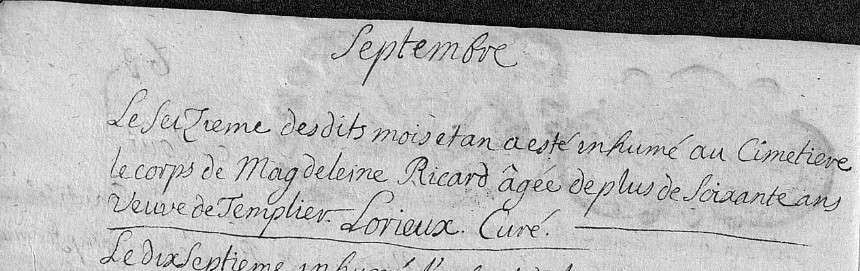 Septembre
Le Seizieme desdits mois et an a esté inhumé au Cimetiere
le corps de Magdeleine Ricard âgée de plus de soixante ans
Veuve de Templier. Lorieux. Curé.
Le dix Septieme inhumé